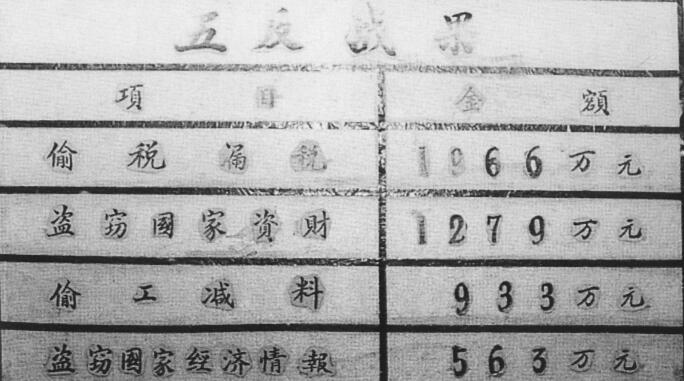 五反战果
項目 金額
偷税漏税 1966万元
盗窃國家資財 1279万元
偷工减料 933万元
盗窃國家经济情報 563万元